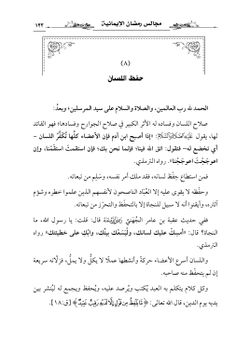 مجالس رمضان الإيمانية
١٢٣
(٨)
حفظ اللسان
الحمد لله رب العالمين، والصلاة والسلام على سيد المرسلين؛ وبعدُ:
صلاح اللسان وفساده له الأثر الكبير في صلاح الجوارح وفسادها؛ فهو القائد
لها، يقول ﷺ: «إذا أصبح ابن آدم فإن الأعضاء كلها تُكَفِّرُ اللسان -
أي تخضع له- فتقول: اتق الله فينا؛ فإنما نحن بك؛ فإن استقمتَ استقمْنَا، وإن
اعوجَجْتَ اعوجَجْنا». رواه الترمذي.
فمن استطاع حِفْظَ لسانه، فقد ملك أمر نفسه، وسَلِم من تبعاته.
وحفْظه لا يقوى عليه إلا العُبَّاد الناصحون لأنفسهم الذين علموا خطره وشؤم
آثاره، وأيقنوا أنه لا سبيل للنجاة إلا بالتحفُّظ والتحرُّز من تبعاته.
ففي حديث عقبة بن عامر الجُهَنيّ رضي الله عنه قال: قلت: يا رسول الله، ما
النجاة؟ قال: «أمسِكْ عليك لسانك، ولْيَسَعْك بيتُك، وابْكِ على خطيئتك» رواه
الترمذي.
واللسان أسرع الأعضاء حركةً وأنشطها عملًا لا يَكِلُّ ولا يملّ، فزلَّاته سريعة
إن لم يتحفَّظ منه صاحبه.
وكل كلام يتكلم به العبد يُكتب ويُرصد عليه، ويُحفظ ويجمع له ليُنشر بين
يديه يوم الدين، قال الله تعالى: ﴿مَّا يَلْفِظُ مِن قَوْلٍ إِلَّا لَدَيْهِ رَقِيبٌ عَتِيدٌ﴾ [ق: ١٨].